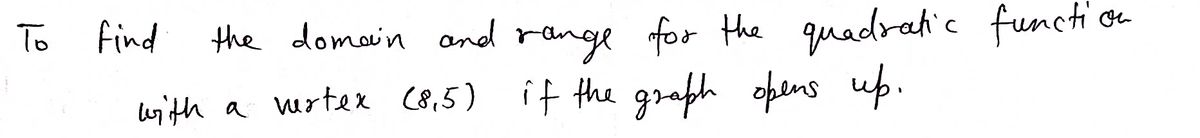 To find the domain and range for the quadratic function
with a vertex (8,5) if the graph opens up.